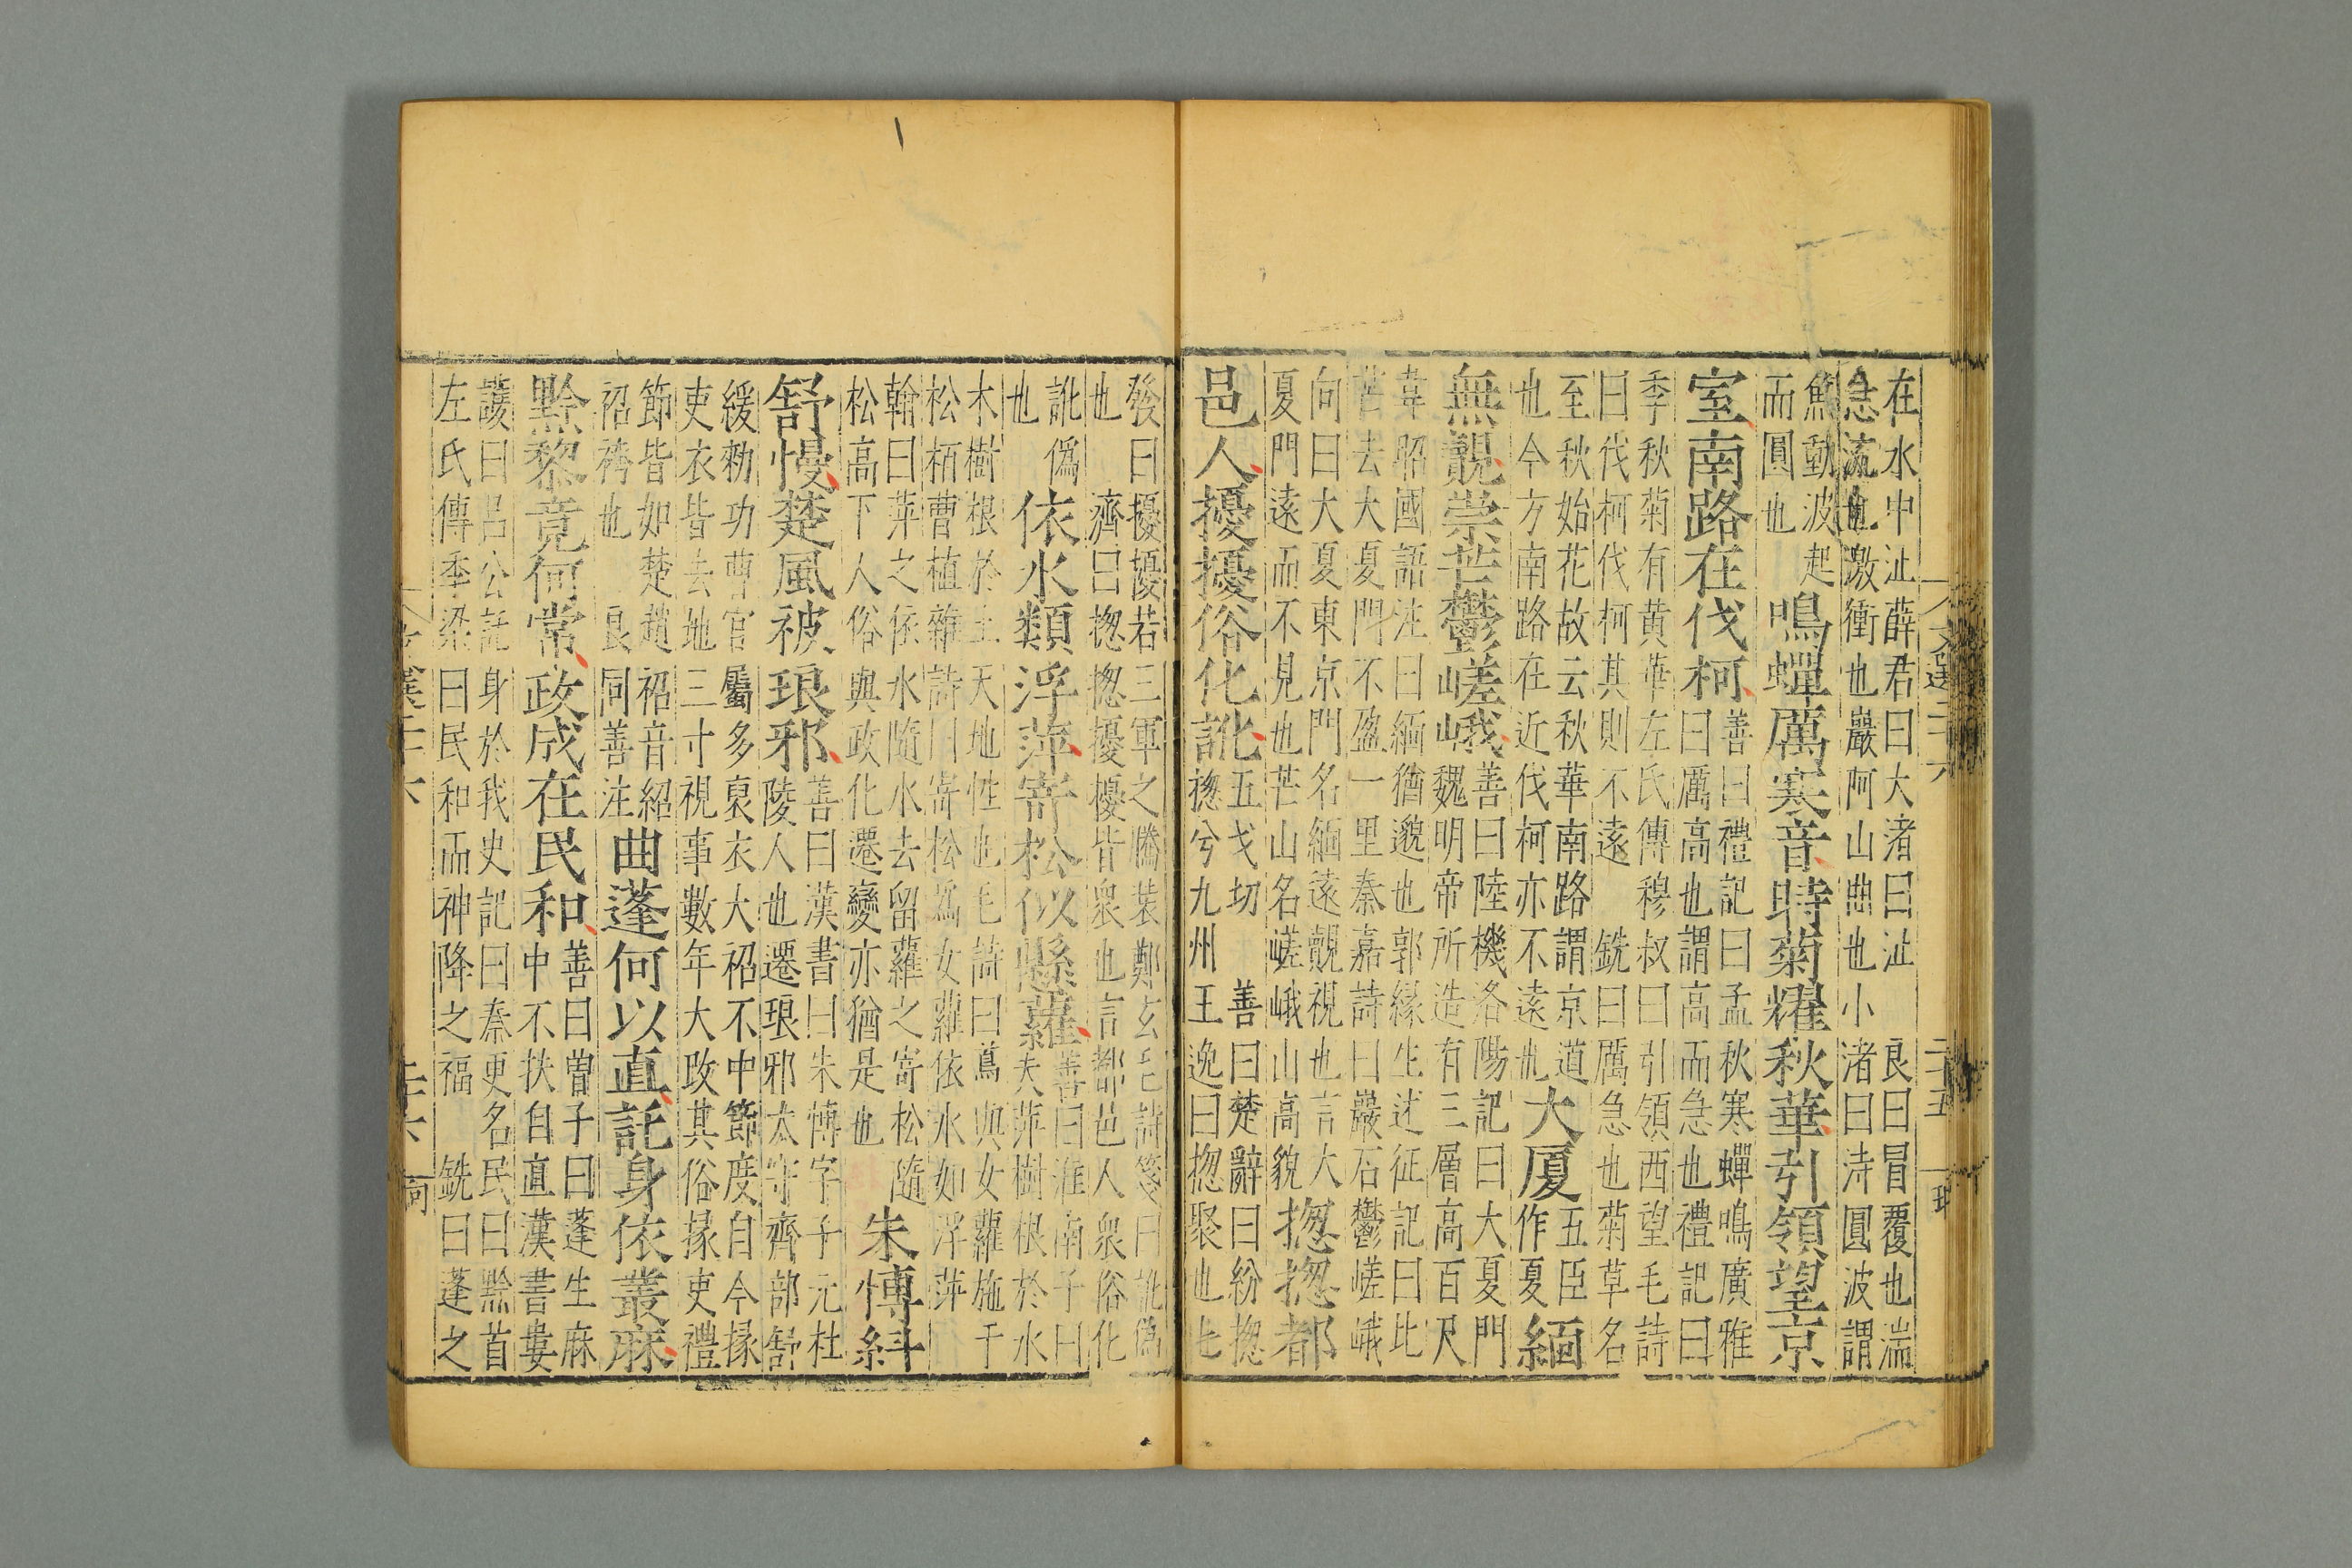 在水中沚薛君曰大渚曰沚　良曰冒覆也湍
急流也激衝也巖阿山曲也小渚曰沚圓波謂
魚動波起
而圓也
鳴蟬厲寒音時菊耀秋華引領望京
室南路在伐柯
善曰禮記曰孟秋寒蟬鳴廣雅
曰厲高也謂高而急也禮記曰
季秋菊有黄華左氏傳穆叔曰引領西望毛詩
曰伐柯伐柯其則不遠　銑曰厲急也菊草名
至秋始花故云秋華南路謂京道
也今方南路在近伐柯亦不遠也
大厦
五臣
作夏
緬
無覿崇芒鬱嵯峨
善曰陸機洛陽記曰大夏門
魏明帝所造有三層高百尺
韋昭國語注曰緬猶邈也郭緣生述征記曰北
芒去大夏門不盈一里秦嘉詩曰巖石鬱嵯峨
向曰大夏東京門名緬遠覿視也言大
夏門遠而不見也芒山名嵯峨山高貌
揔揔都
邑人擾擾俗化訛
五戈切　善曰楚辭曰紛揔
揔兮九州王逸曰揔聚也七
發曰擾擾若三軍之騰裝鄭玄毛詩箋曰訛僞
也　濟曰揔揔擾擾皆衆也言都邑人衆俗化
訛僞
也
依水類浮萍寄松似懸蘿
善曰淮南子曰
夫萍樹根於水
木樹根於土天地性也毛詩曰蔦與女蘿施于
松栢曹植雜詩曰寄松爲女蘿依水如浮萍
翰曰萍之依水隨水去留蘿之寄松隨
松高下人俗與政化遷變亦猶是也
朱愽糾
舒慢楚風被琅邪
善曰漢書曰朱愽字子元杜
陵人也遷琅邪太守齊部舒
緩勑功曹官屬多裒衣大袑不中節度自今掾
吏衣皆去地三寸視事數年大改其俗掾吏禮
節皆如楚趙　袑音紹
袑袴也　良同善注
曲蓬何以直託身依叢麻
黔黎竟何常政成在民和
善曰曽子曰蓬生麻
中不扶自直漢書婁
護曰吕公託身於我史記曰秦更名民曰黔首
左氏傳季梁曰民和而神降之福　銑曰蓬之